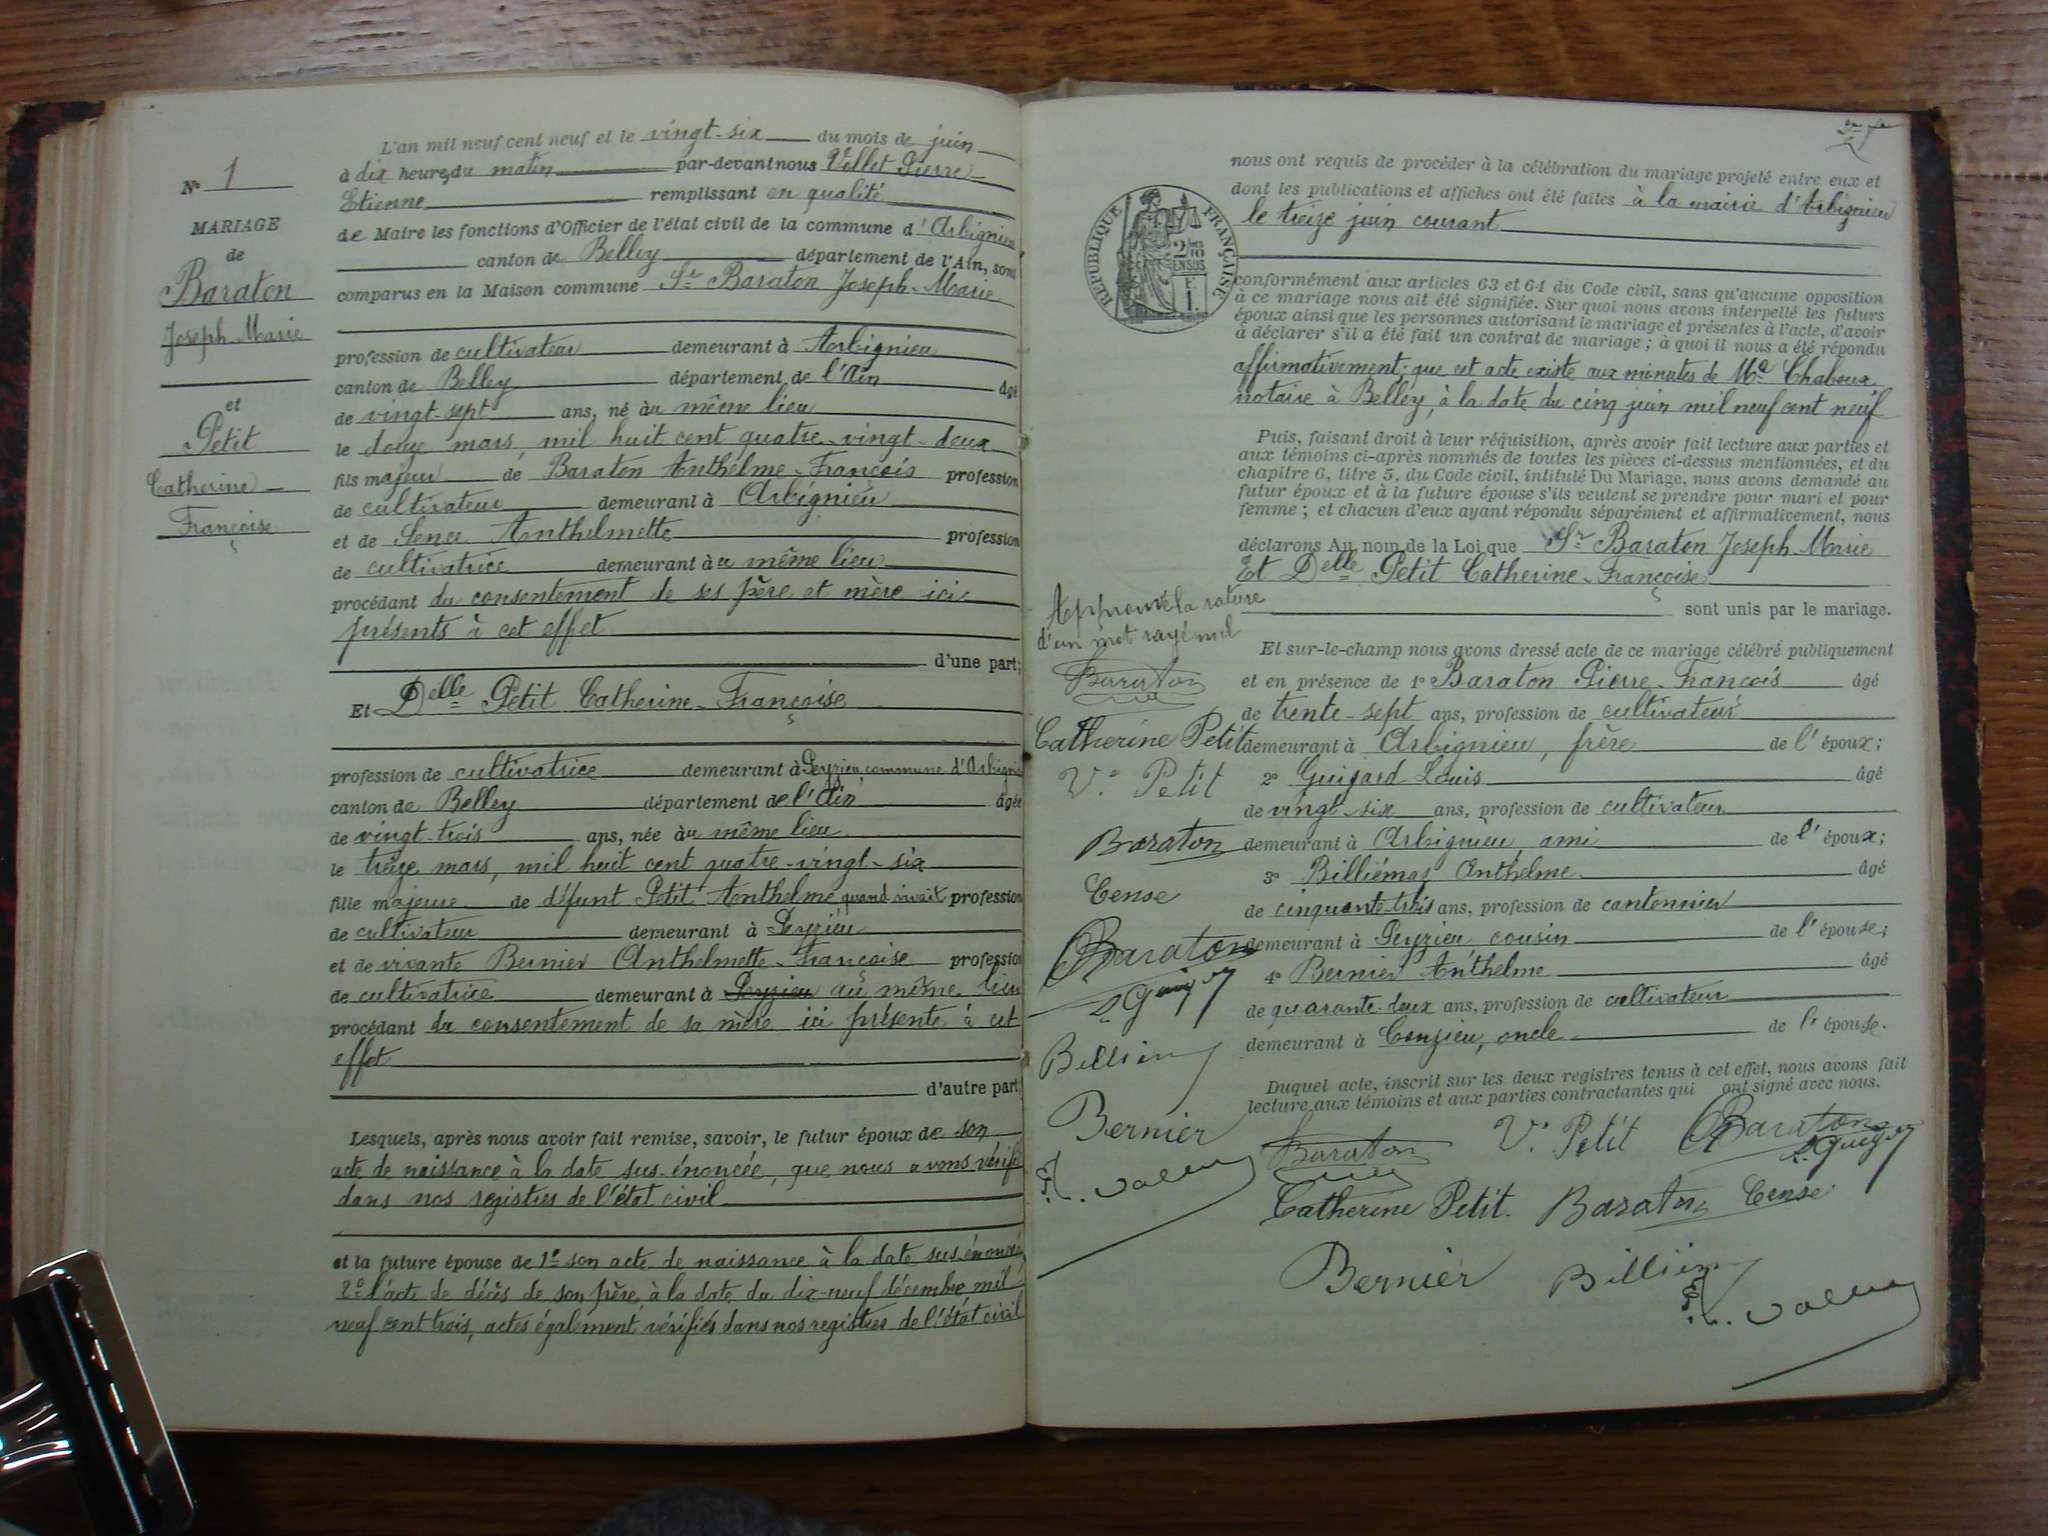 N° 1
MARIAGE
de
Baraton
Joseph-Marie
et
Petit
Catherine
Françoise
L'an mil neuf cent neuf et le vingt-six du mois de juin
à dix heures du matin par-devant nous Vellet Pierre
Etienne remplissant en qualité
de Maire les fonctions d'Officier de l'état civil de la commune d'Arbignieu
canton de Belley département de l'Ain, sont
comparus en la Maison commune Sr Baraton Joseph-Marie
profession de cultivateur demeurant à Arbignieu
canton de Belley département de l'Ain âgé
de vingt-sept ans, né au même lieu
le douze mars, mil huit cent quatre-vingt-deux
fils majeur de Baraton Anthelme-François profession
de cultivateur demeurant à Arbignieu
et de Anthelmette profession
de cultivatrice demeurant au même lieu
procédant du consentement de ses père et mère ici
présents à cet effet
d'une part;
Et Delle Petit Catherine-Françoise
profession de cultivatrice demeurant à Peyzieu, commune d'Arbignieu
canton de Belley département de l'Ain âgée
de vingt-trois ans, née au même lieu
le treize mars, mil huit cent quatre-vingt-six
fille majeure de défunt Petit Anthelme quand vivait profession
de cultivateur demeurant à Peyzieu
et de vivante Bernier Anthelmette-Françoise profession
de cultivatrice demeurant à Peyzieu au même lieu
procédant du consentement de sa mère ici présente à cet
effet
d'autre part
Lesquels, après nous avoir fait remise, savoir, le futur époux de son
acte de naissance à la date sus-énoncée, que nous avons vérifié
dans nos registres de l'état civil
et la future épouse de 1° son acte de naissance à la date sus énoncée
2° l'acte de décès de son père, à la date du dix-neuf décembre mil
neuf cent trois, actes également vérifiés dans nos registres de l'état civil
RÉPUBLIQUE FRANÇAISE
nous ont requis de procéder à la célébration du mariage projeté entre eux et
dont les publications et affiches ont été faites à la mairie d'Arbignieu
le treize juin courant
conformément aux articles 63 et 64 du Code civil, sans qu'aucune opposition
à ce mariage nous ait été signifiée. Sur quoi nous avons interpellé les futurs
époux ainsi que les personnes autorisant le mariage et présentes à l'acte, d'avoir
à déclarer s'il a été fait un contrat de mariage; à quoi il nous a été répondu
affirmativement; que cet acte existe aux minutes de Me Chaboux
notaire à Belley, à la date du cinq juin mil neuf cent neuf
Puis, faisant droit à leur réquisition, après avoir fait lecture aux parties et
aux témoins ci-après nommés de toutes les pièces ci-dessus mentionnées, et du
chapitre 6, titre 5, du Code civil, intitulé Du Mariage, nous avons demandé au
futur époux et à la future épouse s'ils veulent se prendre pour mari et pour
femme; et chacun d'eux ayant répondu séparément et affirmativement, nous
déclarons Au nom de la Loi que Sr Baraton Joseph Marie
Et Delle Petit Catherine-Françoise
sont unis par le mariage.
Et sur-le-champ nous avons dressé acte de ce mariage célébré publiquement
et en présence de 1° Baraton Pierre-François âgé
de trente-sept ans, profession de cultivateur
demeurant à Arbignieu, frère de l'époux;
2° Guigard Louis âgé
de vingt-six ans, profession de cultivateur
demeurant à Arbignieu, ami de l'époux;
3° Billiémaz Anthelme âgé
de cinquante-trois ans, profession de cantonnier
demeurant à Peyzieu cousin de l'épouse;
4° Bernier Anthelme âgé
de quarante-deux ans, profession de cultivateur
demeurant à Conzieu, oncle de l'épouse.
Duquel acte, inscrit sur les deux registres tenus à cet effet, nous avons fait
lecture aux témoins et aux parties contractantes qui ont signé avec nous.
Approuvé la rature
d'un mot rayé nul
Baraton
Catherine Petit
Ve Petit
Baraton
Cense
Baraton
Bernier
Baraton Ve Petit Baraton
Catherine Petit. Baraton Cense
Bernier